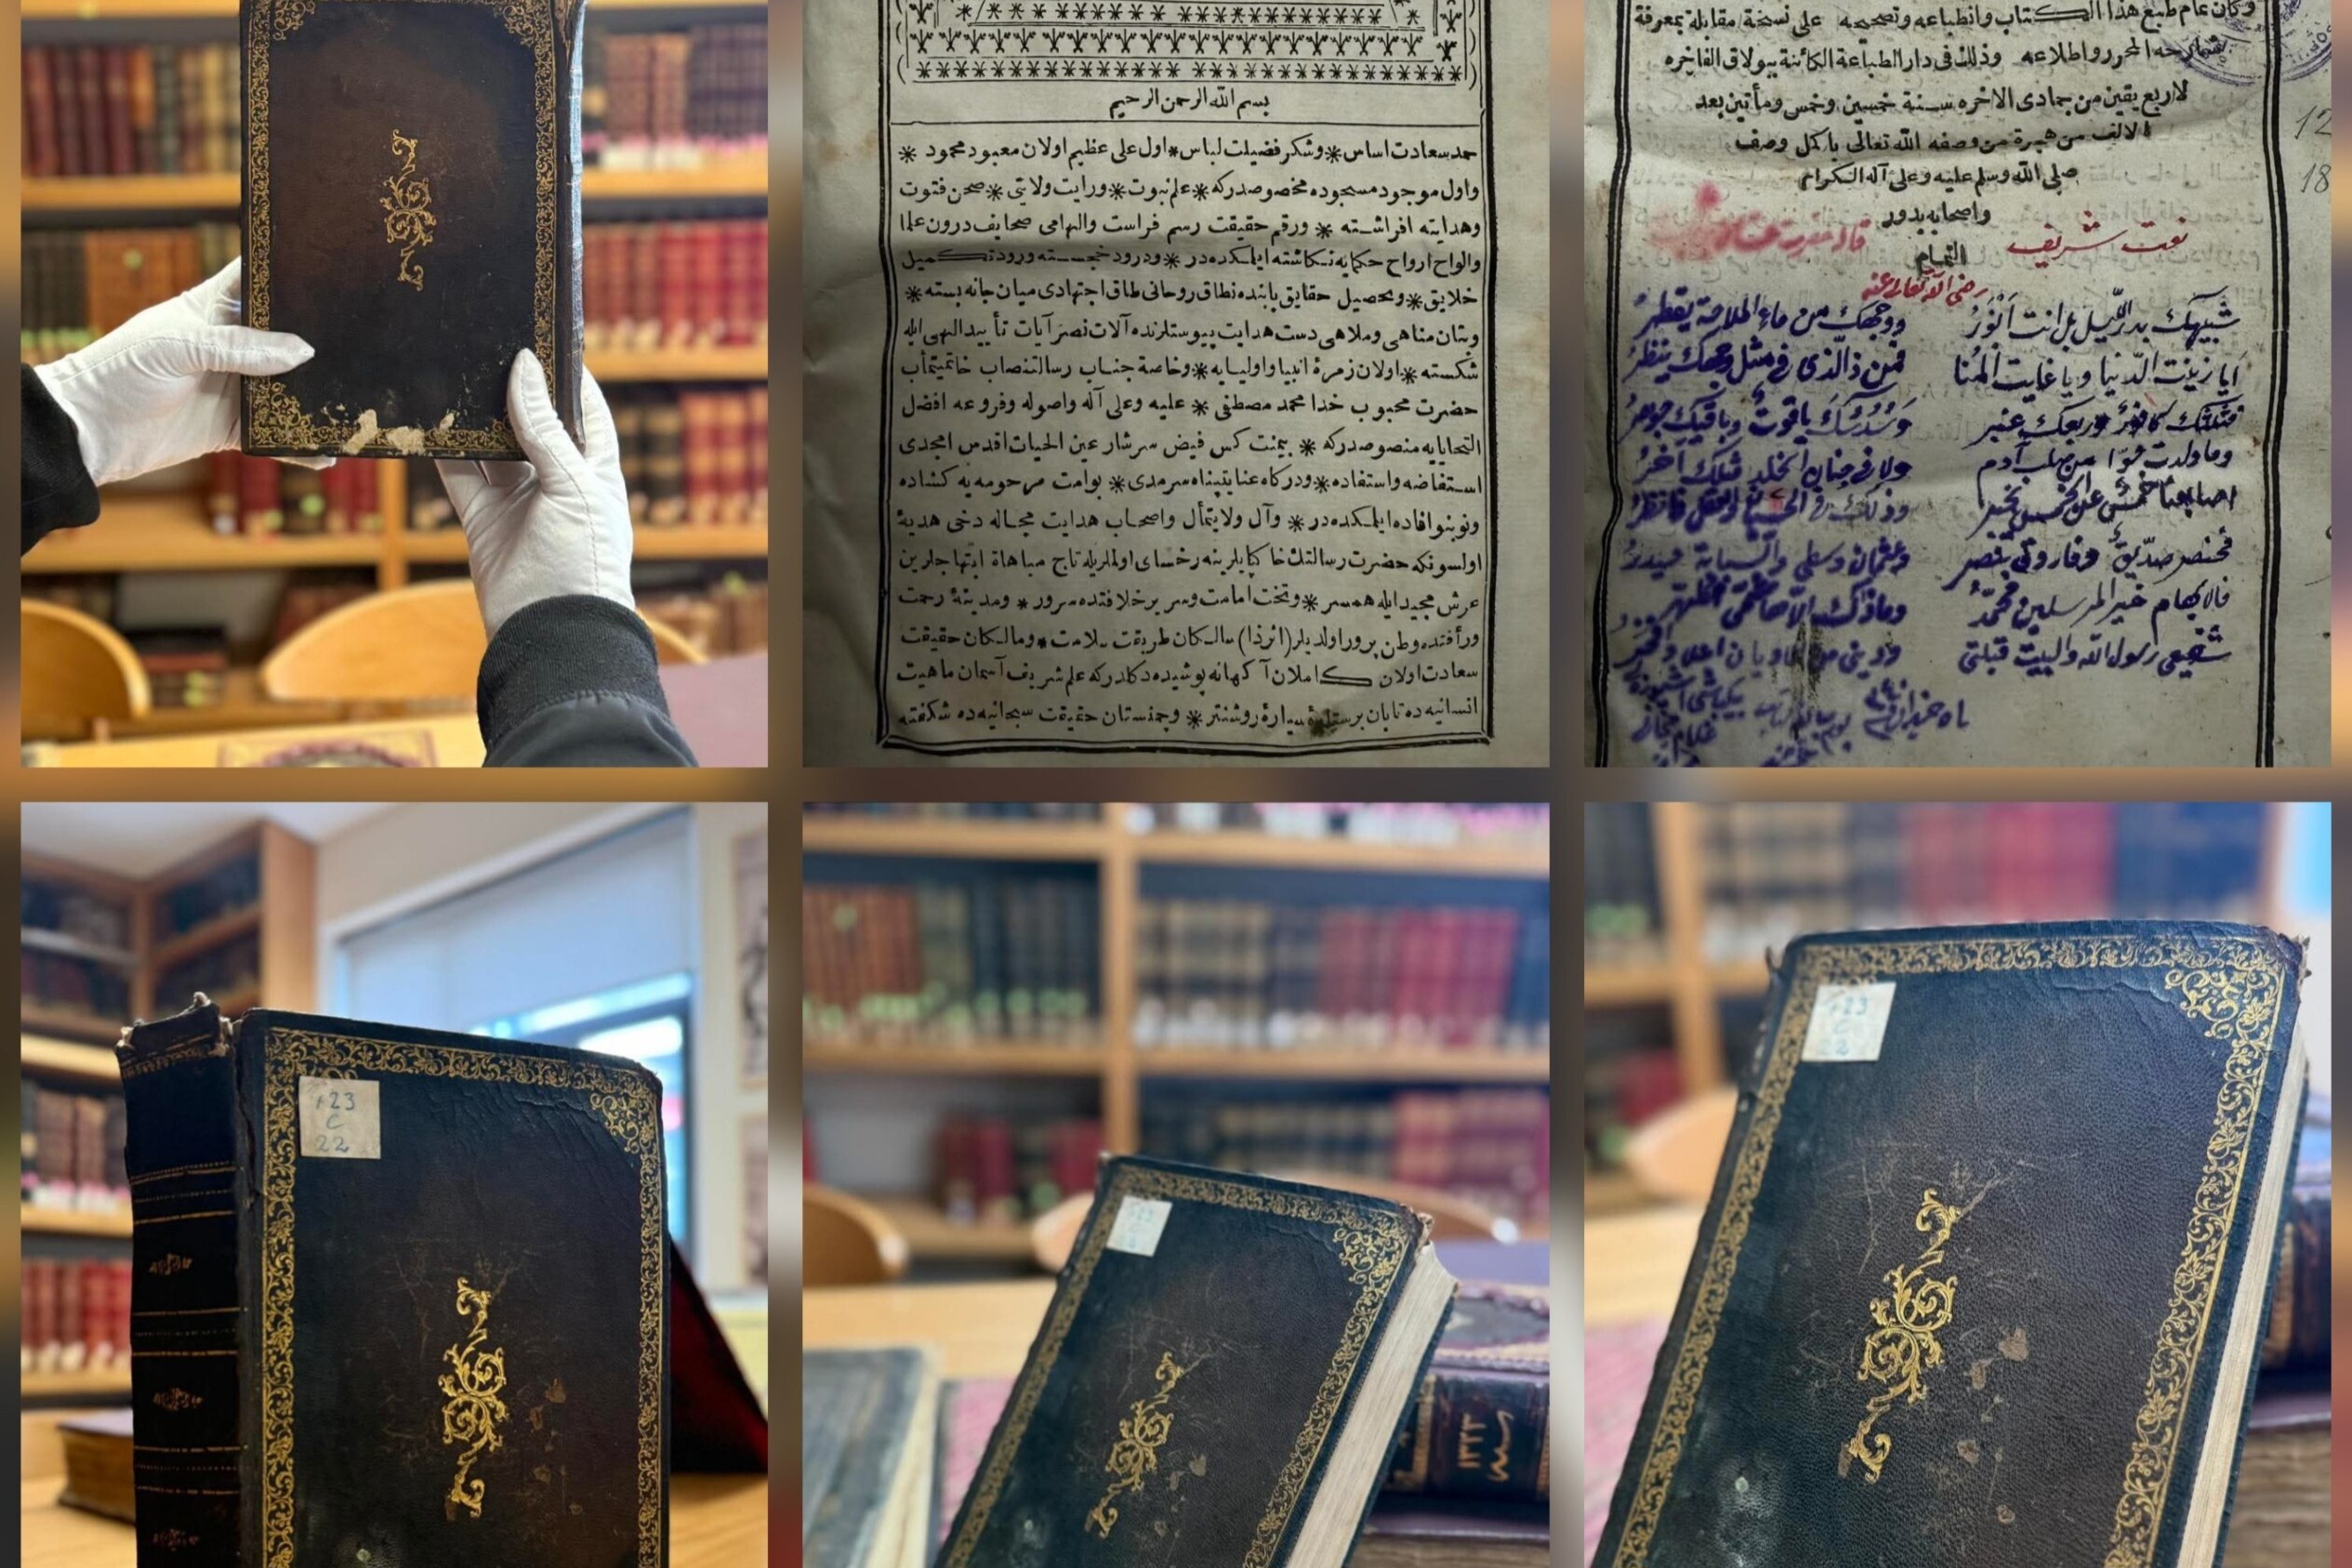 بسم الله الرحمن الرحيم
حمد سعادت اساس * وشكر فضيلت لباس * اول على عظيم اولان معبود محمود *
واول موجود مسجوده مخصوصدركه * علم نبوت * ورايت ولايتى * صحن فتوت
وهدايته افراشته * ورقم حقيقت رسم فراست والهامى صحايف درون علما
والواح ارواح حكمايه نكاشته ايلمكده در * ودرود خجسته ورود تكميل
خلايق * وتحصيل حقايق بابنده نطاق روحانى طاق اجتهادى ميان جانه بسته *
وبتان مناهى وملاهى دست هدايت پيوستلرنده آلات نصر آيات تأييد الهى ايله
شكسته * اولان زمرۀ انبيا واوليايه * وخاصة جناب رسالتنصاب خاتميتمأب
حضرت محبوب خدا محمد مصطفى * عليه وعلى آله واصوله وفروعه افضل
التحايايه منصوصدركه * يمنت كس فيض سرشار عين الحيات اقدس امجدى
استفاضه واستفاده * ودركاه عنايتپناه سرمدى * بو امت مرحومه يه كشاده
ونوبنو افاده ايلمكده در * وآل ولايتمأل واصحاب هدايت مجاله دخى هديۀ
اولسونكه حضرت رسالتك خاكپايلرينه رخساى اولملريله تاج مباهاة ابتهاجلرين
عرش مجيد ايله همسر * وتخت امامت وسرير خلافتده سرور * ومدينۀ رحمت
ورأفتده وطن پرور اولديلر (اثرذا) سالكان طريقت سلامت * ومالكان حقيقت
سعادت اولان كاملان آكهانه پوشيده دكلدركه علم شريف آسمان ماهيت
انسانيه ده تابان بر ستارۀ سيارۀ روشنتر * وچمنستان حقيقت سبحانيه ده شكفته
وكان عام طبع هذا الكتاب وانطباعه وتصحيحه على نسخة مقابلة بمعرفة
شارحه المحرر واطلاعه وذلك فى دار الطباعة الكائنة ببولاق الفاخره
لاربع بقين من جمادى الاخره سنة خمسين وخمس ومأتين بعد
الالف من هجرة من وصفه الله تعالى باكمل وصف
صلى الله وسلم عليه وعلى آله الكرام
واصحابه بدور
التمام
نعت شريف
قال حضرت
رضى الله تعالى عنه
شبيهك بدر الليل بل انت انور ووجهك من ماء الملاحة يقطر
ايا زينت الدنيا ويا غايت المنا فمن ذا الذى فى مثل وجهك ينظر
وسدسك ياقوت وباقيك جوهر
وما ولدت حوا من صلب آدم ولا فى جنان الخلد مثلك آخر
اصابعنا خمس عن الخمس تخبر وذلك فى
فخنصر صديق وفاروق بنصر وعثمان وسطى والسبابة حيدر
فالابهام خير المرسلين محمد وما ذاك الا
شفيعى رسول الله والبيت قبلتى ودينى من
12
18
123
C
22
123
C
22
١٣٢٢
سنه